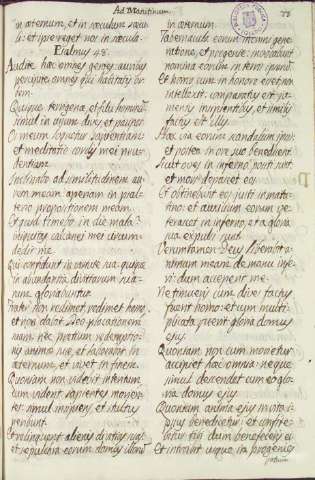 Ad Matutinum.
77
in æternum, et in sæculum sæcu
li: et ipse reget nos in sæcula.
Psalmus 48.
Audite hæc omnes gentes: auribus
percipite omnes qui habitatis or
bem.
Quique terrigenæ, et filii hominum
simul in unum dives, et pauper.
Os meum loquetur sapientiam:
et meditatio cordis mei prudentiam
Inclinabo ad similitudinem au
rem meam: aperiam in psal
terio propositionem meam.
Et quid timebo in die mala?
iniquitas calcanei mei circum
dedit me.
Qui confidunt in virtute sua: quique
in abundantia divitiarum sua
rum gloriantur.
Frater non redimet redimet homo
et non dabit Deo placationem
suam, nec pretium redemptio
nis animæ suæ, et laboravit in
æternum, et vivet in finem.
Quoniam non videvit interitum
cum viderit sapientes morien
tes: simul insipiens, et stultus
peribunt.
Et relinquent alienis divitias suas
et sepulchra eorum domus illorum
in æternum.
Tabernacula eorum in progenie
et progenie: vocaverunt
nomina eorum in terris suis.
Et homo cum in honore esset non
intellexit: comparatus est ju
mentis insipientibus, et similis
factus est illis.
Hæc via eorum scandalum ipsis:
et postea in ore suo benedicent
Sicut oves in inferno positi sunt
et mors depascet eos.
Et dominabuntur eorum justi in matuti
no: et auxilium eorum ve
terascet in inferno, et a gloria
sua expulsi sunt.
Verumtamen Deus liberabit a
nimam meam de manu infe
ri: dum acceperit me.
Ne timueris cum dives factus
fuerit homo: et cum multi
plicata fuerit gloria domus
ejus.
Quoniam non cum morietur
accipiet hæc omnia: neque
simul descendet cum eo glo
ria domus ejus.
Quoniam anima ejus in vita i
psius benedicetur: et confite
bitur tibi dum benefeceris ei
Et introibit usque in progenies
patrum